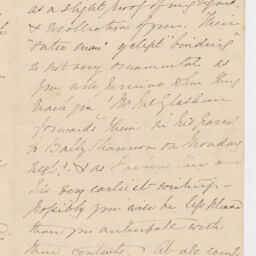 as a slight proof of my regard
& recollection of you. Their
"outer man" yclept "binding"
is not very ornamental as
you will perceive when they
reach you. Mr McGlashan
forwards them in his parcel
to Ballyshannon on Monday
next! - & as I believe they were
his very earliest writings -
possibly you will be less pleased
than you anticipate with
their contents At all events